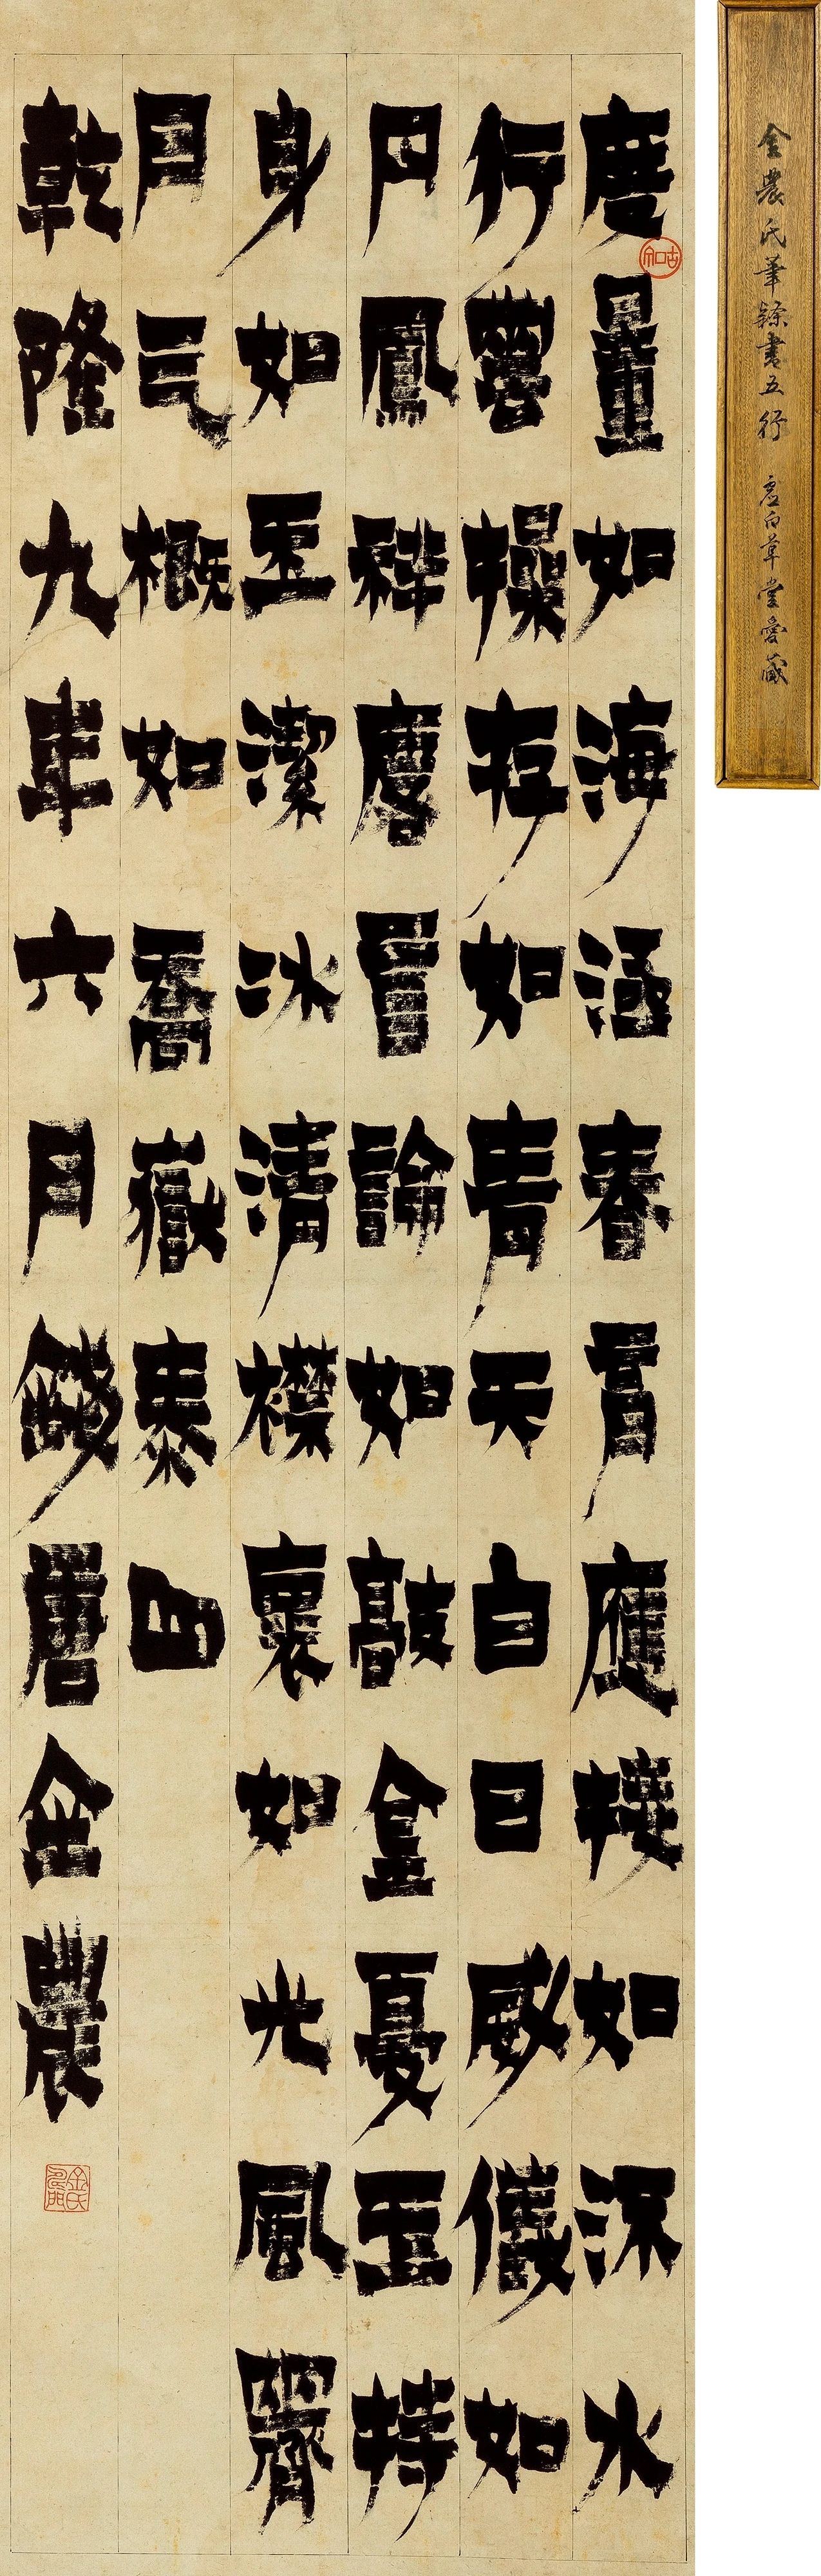 度量如海涵春育應接如流水
行雲操存如青天白日威儀如
丹鳳祥麐言論如敲金戛玉持
身如玉潔冰清襟褱如光風霽
月气概如喬嶽泰山
乾隆九年六月錢唐金農
金農氏筆隸書五行 虛白草堂愛藏